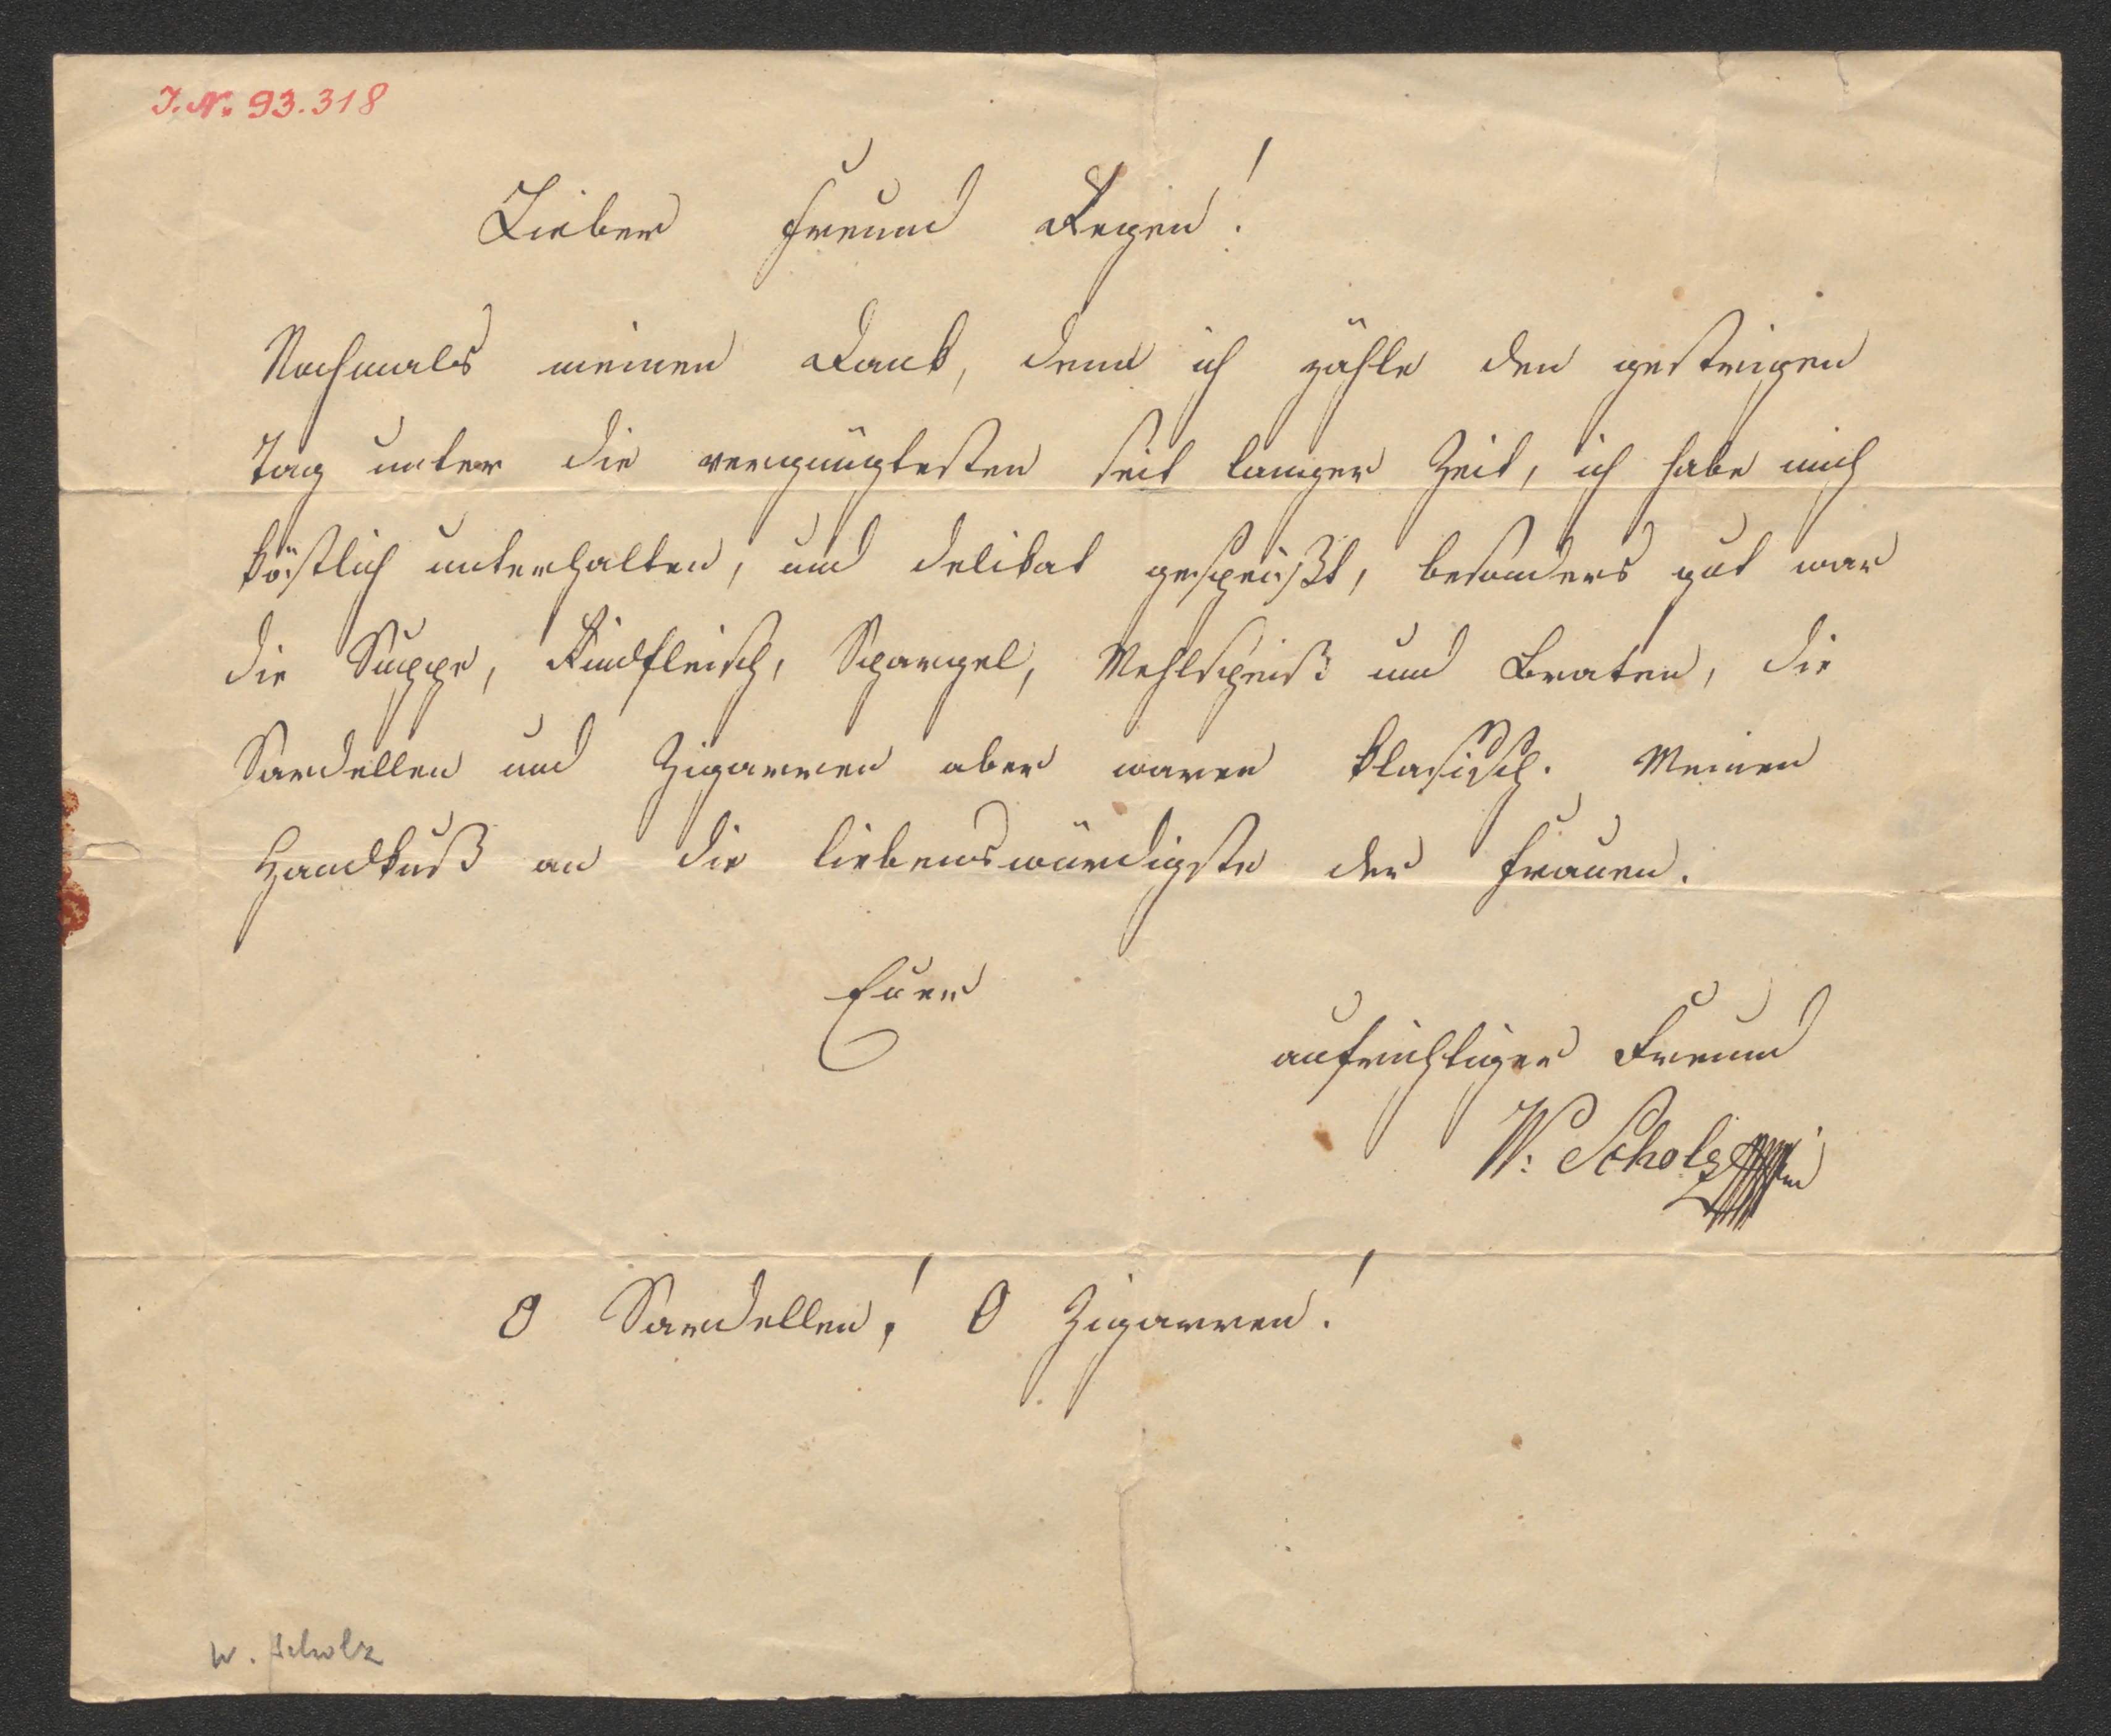 I. N. 93.318
Lieber Freund Regen!
Nochmals meinen Dank, denn ich zähle den gestrigen
Tag unter die vergnügtesten seit langer Zeit, ich habe mich
köstlich unterhalten, und delikat gespeißt, besonders gut war
die Suppe, Rindfleisch, Spargel, Mehlspeiß und Braten, die
Sardellen und Zigarren aber waren klasisch. Meinen
Handkuß an die liebenswürdigste der Frauen.
Euer
aufrichtiger Freund
W: Scholz
O Sardellen! O Zigarren!
W. Scholz